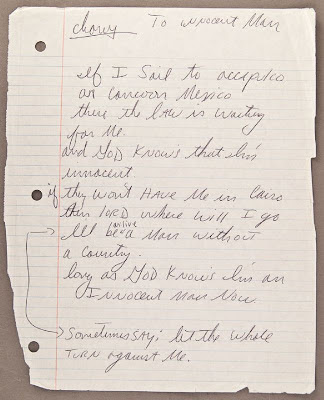 chorus To innocent Man
if I Sail to accapolco
or Cancoon Mexico
there the LAW is waiting
for Me.
and GOD KNOWS that I'm
innocent.
if they won't HAVE Me in Cairo
then LORD where will I go
I'll be a Man without
a Country.
GOD KNOWS I'm an
INNOCENT MAN Now.
SOMETIMES SAY; let the whole
TURN against Me.